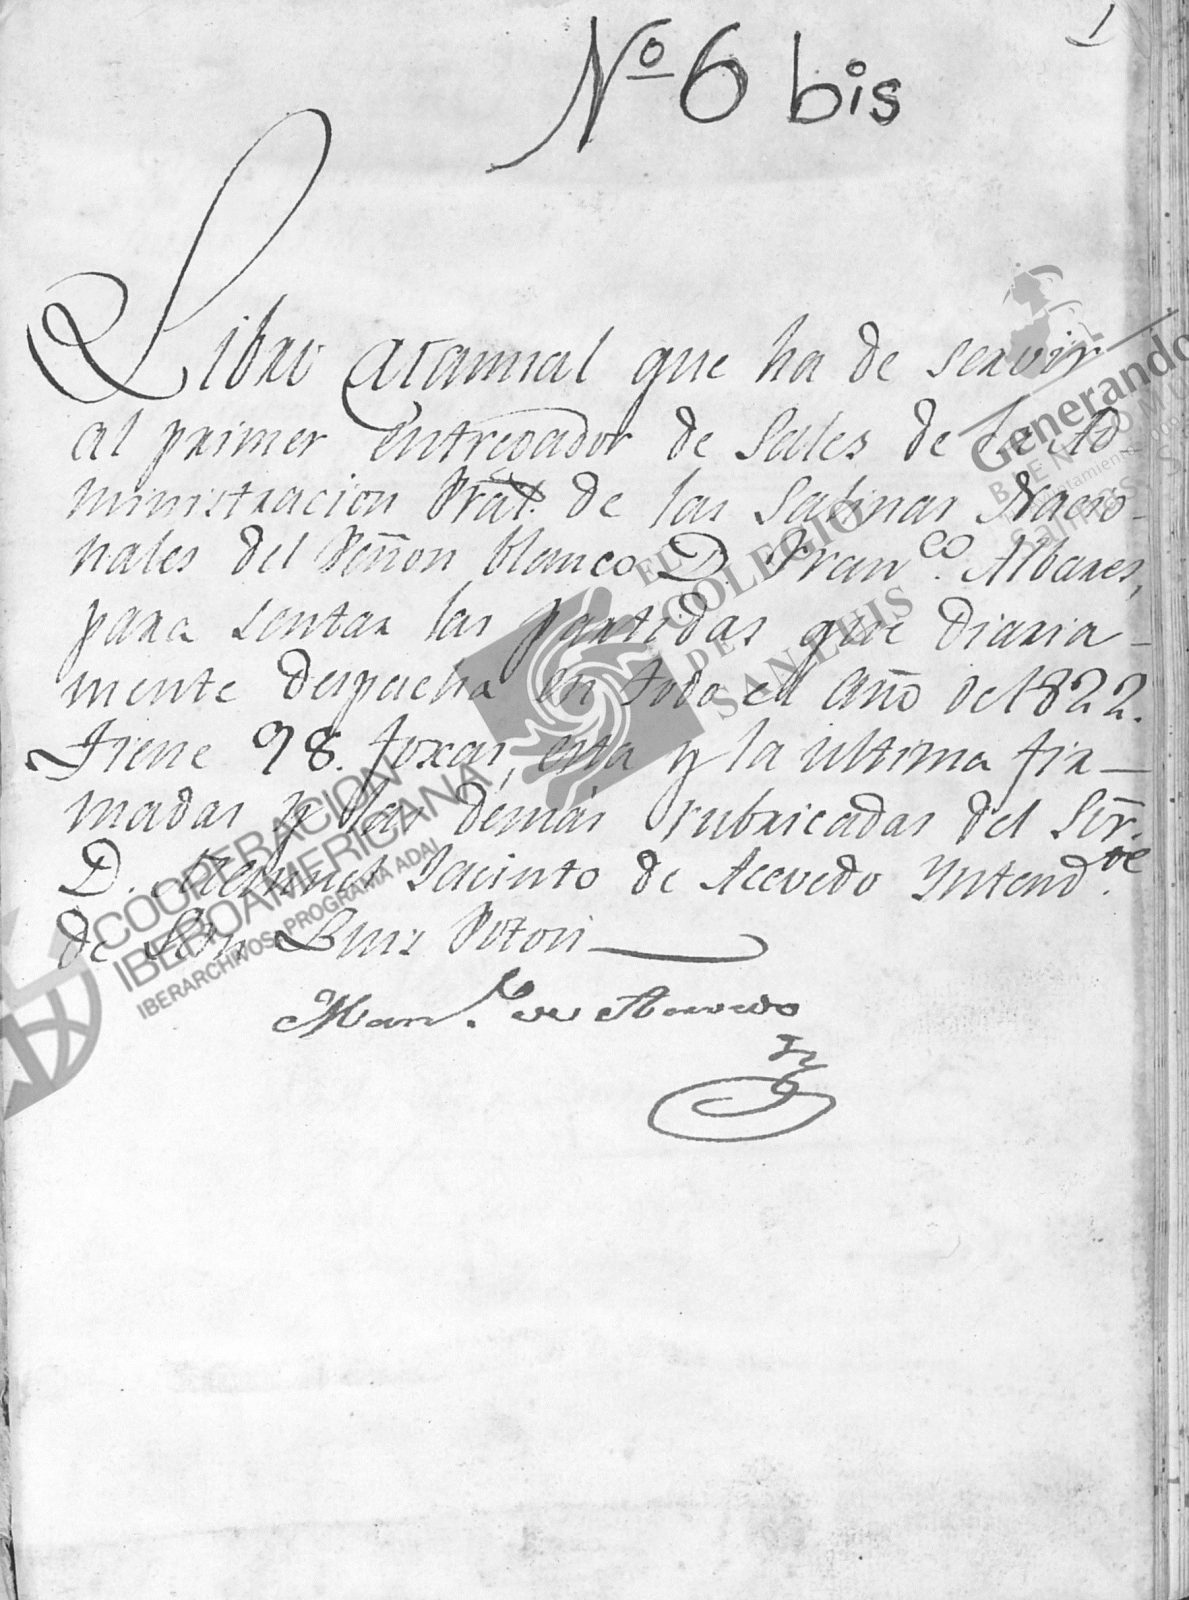 1
Nº 6 bis
Libro que ha de servir
al primer entregador de Sales de la Ad
ministracion Pral. de las Salinas Nacio-
nales del Peñon blanco D. Franco. Albares,
para sentar las partidas que diaria-
mente despacha en todo el año de 1822.
Tiene 98. foxas, esta y la ultima fir-
madas y las demás rubricadas del Señr.
D. Manuel Jacinto de Acevedo Yntendte.
de San Luis Potosi
Manl. de Acevedo
EL
COLEGIO
DE
SAN LUIS
Generando
COOPERACION
IBEROAMERICANA
IBERARCHIVOS-PROGRAMA ADAI